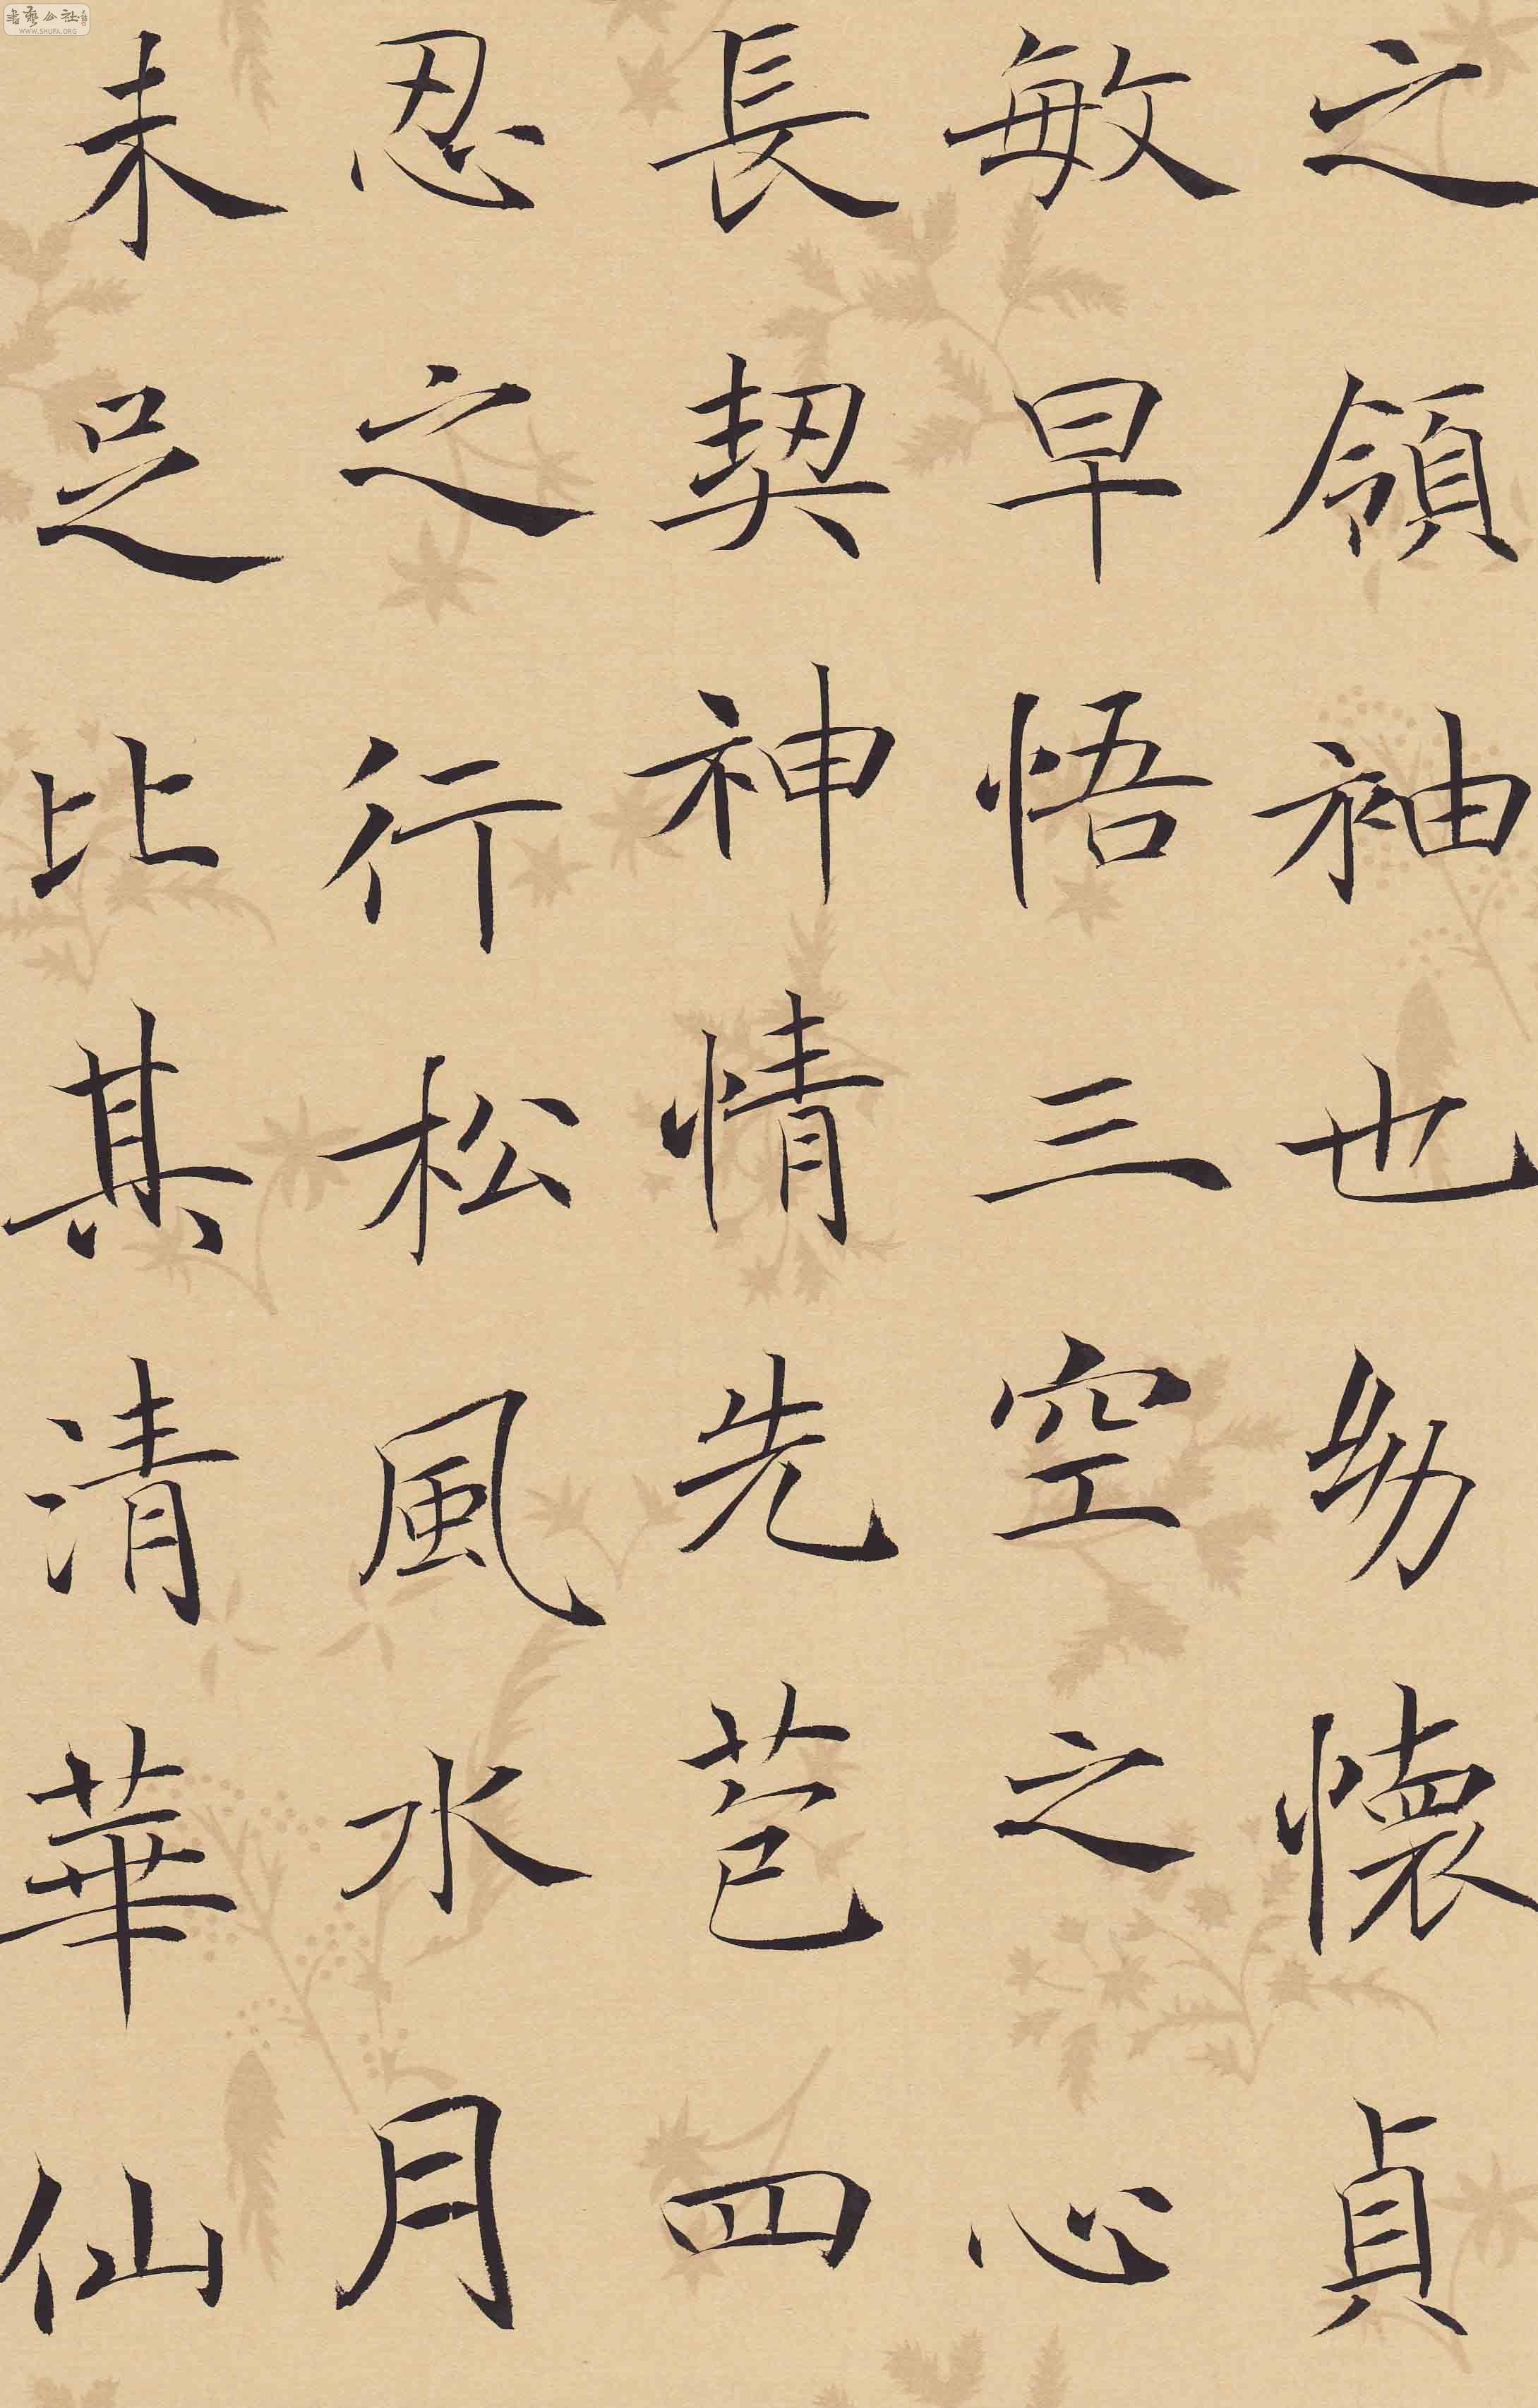 之領袖也幼懷貞
敏早悟三空之心
長契神情先苞四
忍之行松風水月
未足比其清華仙
書藝公社
WWW.SHUFA.ORG